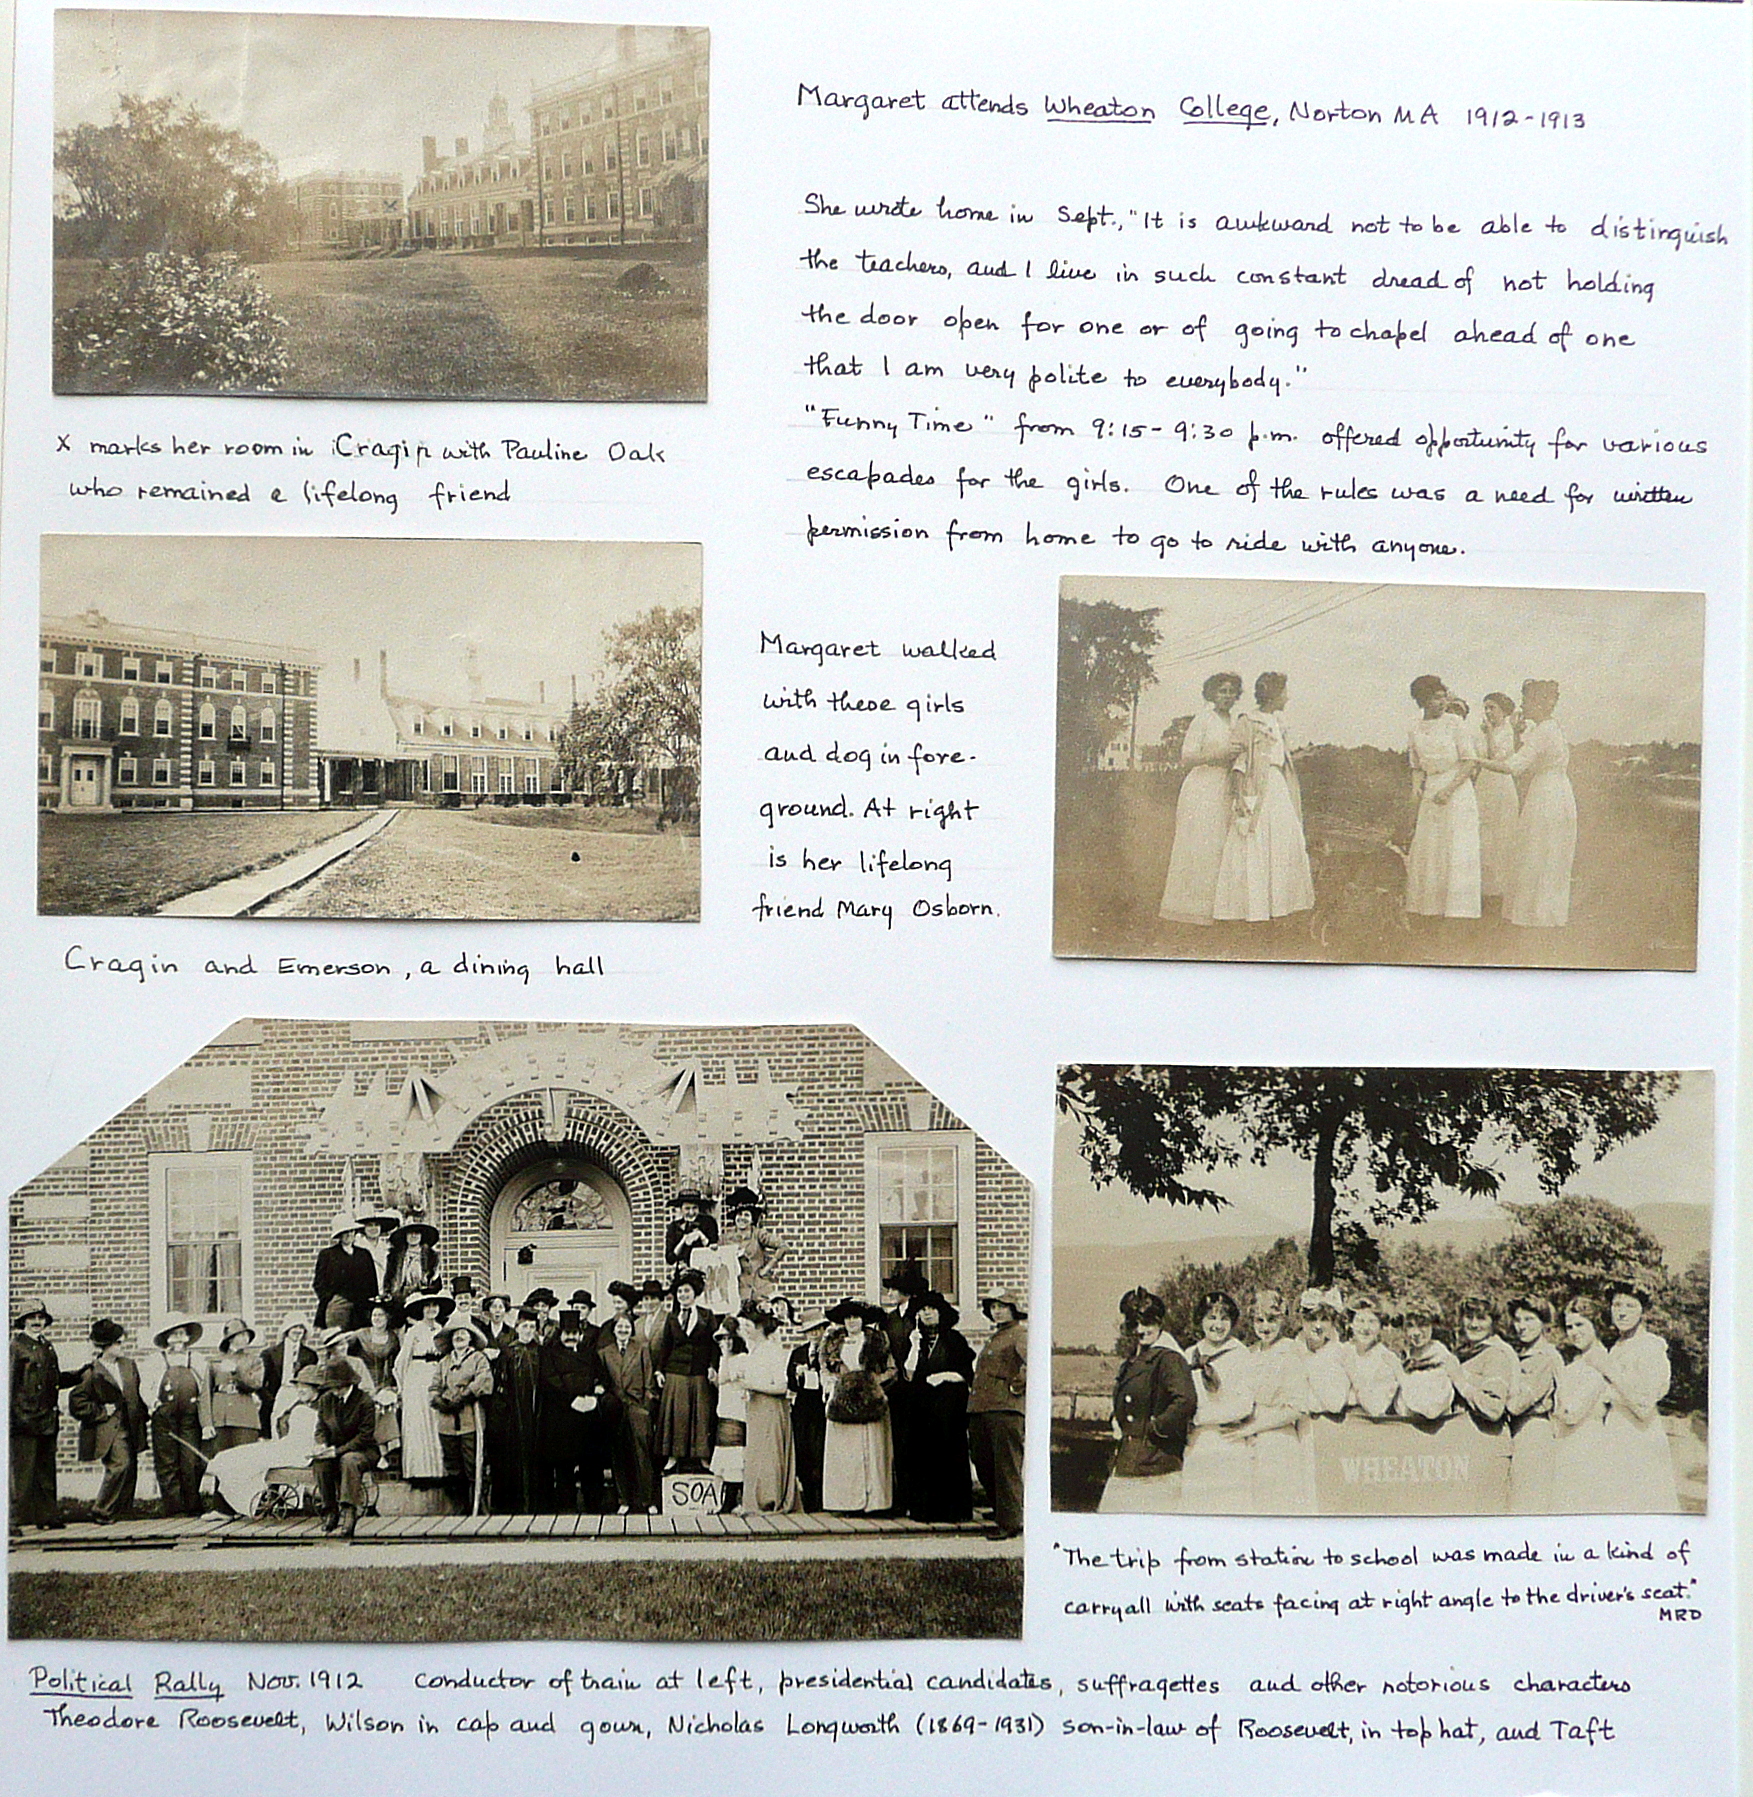 Margaret attends Wheaton College, Norton MA 1912-1913
She wrote home in Sept., "It is awkward not to be able to distinguish
the teachers, and I live in such constant dread of not holding
the door open for one or of going to chapel ahead of one
that I am very polite to everybody."
"Funny Time" from 9:15-9:30 p.m. offered opportunity for various
escapades for the girls. One of the rules was a need for written
permission from home to go to ride with anyone.
X marks her room in Cragin with Pauline Oak
who remained a lifelong friend
Margaret walked
with these girls
and dog in fore-
ground. At right
is her lifelong
friend Mary Osborn.
Cragin and Emerson, a dining hall
SOA
WHEATON
"The trip from station to school was made in a kind of
carryall with seats facing at right angle to the driver's seat."
MRD
Political Rally Nov. 1912 conductor of train at left, presidential candidates, suffragettes and other notorious characters
Theodore Roosevelt, Wilson in cap and gown, Nicholas Longworth (1869-1931) son-in-law of Roosevelt, in top hat, and Taft